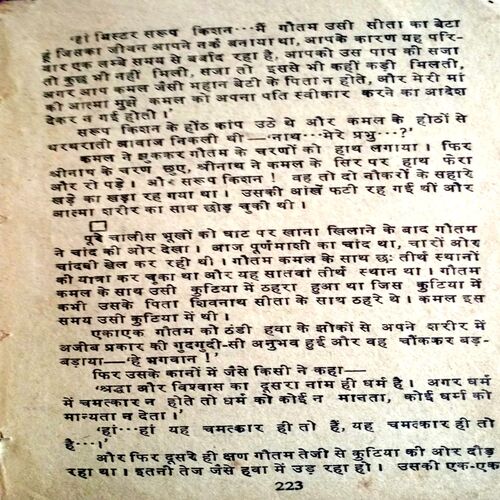 'हां मिस्टर सरूप किशन···मैं गौतम उसी सीता का बेटा
हूं जिसका जीवन आपने नर्क बनाया था, आपके कारण यह परि-
वार एक लम्बे समय से बर्बाद रहा है, आपको उस पाप की सजा
तो कुछ भी नहीं मिली, सजा तो इससे भी कहीं कड़ी मिलती,
अगर आप कमल जैसी महान बेटी के पिता न होते, और मेरी मां
की आत्मा मुझे कमल को अपना पति स्वीकार करने का आदेश
देकर न गई होती।'
सरूप किशन के होंठ कांप उठे थे और कमल के होठों से
थरथराती आवाज निकली थी—'नाथ···मेरे प्रभु···?'
कमल ने झुककर गौतम के चरणों को हाथ लगाया। फिर
श्रीनाथ के चरण छुए, श्रीनाथ ने कमल के सिर पर हाथ फेरा
और रो पड़े। और सरूप किशन! वह तो दो नौकरों के सहारे
खड़े का खड़ा रह गया था। उसकी आंखें फटी रह गई थीं और
आत्मा शरीर का साथ छोड़ चुकी थी।
पूरे चालीस भूखों को घाट पर खाना खिलाने के बाद गौतम
ने चांद की ओर देखा। आज पूर्णमाशी का चांद था, चारों ओर
चांदनी खेल कर रही थी। गौतम कमल के साथ छः तीर्थ स्थानों
की यात्रा कर चुका था और यह सातवां तीर्थ स्थान था। गौतम
कमल के साथ उसी कुटिया में ठहरा हुआ था जिस कुटिया में
कभी उसके पिता शिवनाथ सीता के साथ ठहरे थे। कमल इस
समय उसी कुटिया में थी।
एकाएक गौतम को ठंडी हवा के झोंकों से अपने शरीर में
अजीब प्रकार की गुदगुदी-सी अनुभव हुई और वह चौंककर बड़-
बड़ाया—'हे भगवान!'
फिर उसके कानों में जैसे किसी ने कहा—
'श्रद्धा और विश्वास का दूसरा नाम ही धर्म है। अगर धर्म
में चमत्कार न होते तो धर्म को कोई न मानता, कोई धर्म को
मान्यता न देता।'
'हां···हां यह चमत्कार ही तो हैं, यह चमत्कार ही तो
है···।'
और फिर दूसरे ही क्षण गौतम तेजी से कुटिया की ओर दौड़
रहा था। इतनी तेज जैसे हवा में उड़ रहा हो। उसकी एक-एक
223